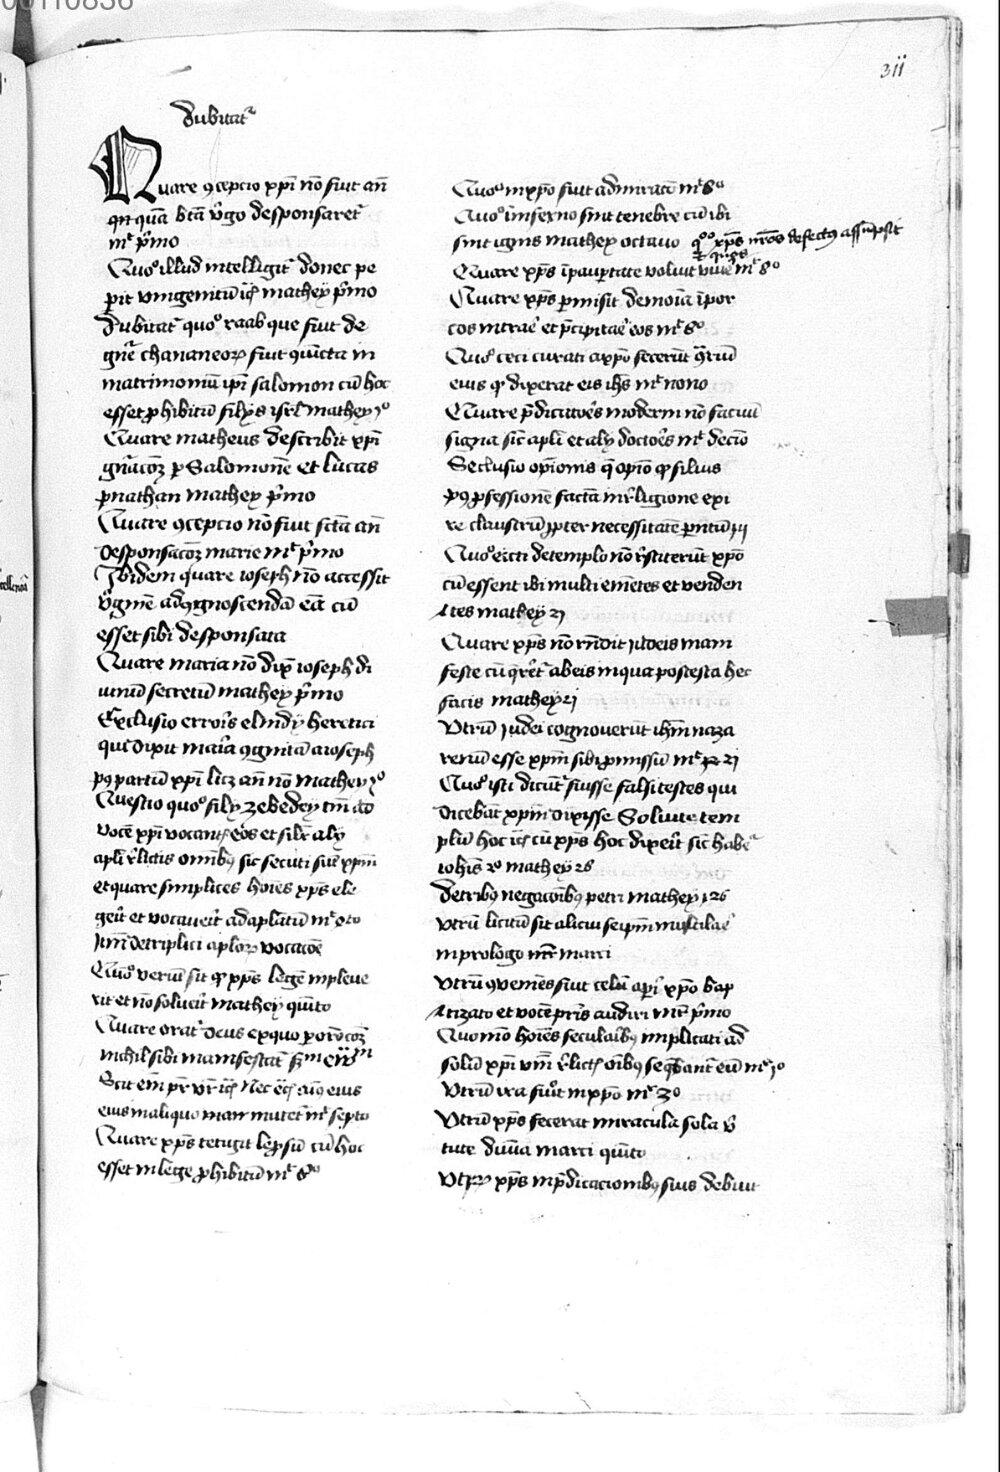 00110836
311
dubitatr
Quare ꝯcepcio xpi nō fuit añ
qn̄ quā btā v̓go desponsaretr
mt p̓mo
Quo illud intelligitr donec pe
perit vnigenitū ic̄ mathey p̓mo
Dubitatr quo raab que fuit de
gn̄e chananeorꝝ fuit ꝯiūcta in
matrimoniū ip̄i salomon cū hoc
esset ꝓhibitū filijs isrl mathey jo
Quare matheus describit xp̄i
gn̄acōꝫ ꝑ Salomonē et lucas
ꝑ nathan mathey p̓mo
Quare ꝯcepcio nō fuit fctā añ
desponsacōꝫ marie mt p̓mo
Ibidem quare ioseph nō accessit
v̓ginē ad ꝯgnoscendā eā cū
esset sibi desponsata
Quare maria nō dix̄ ioseph di
uinū secretū mathey p̓mo
Exclusio erroris elindij heretici
qui dixit maria ꝯgnitā a ioseph
pꝰ partū xp̄i licꝫ añ nō mathey jo
Questio quo filij zebedey tm̄ ad
vocē xp̄i vocantis eos et silr alij
apl̓i r̓lictis omībꝰ sic secuti sūt xp̄m
et quare simplices hoīes xp̄s ele
gerit et vocauerit ad apl̓atū mt 4to
Itm̄ de triplici aplorꝝ vocacōe
Quo verū sit ꝙ xp̄s legē impleue
rit et nō soluerit mathey quīto
Quare oratr deus ex quo ꝑ orōcōꝫ
nichil sibi manifestatr
Scit em̄ pr̄ vr̄ ic̄ Nec ec̄ aīꝰ eius
eius in aliquo natr mutetr mt septo
Quare xp̄s tetigit lep̄sū cū hoc
esset in lege ꝓhibitū mt 8o
Quo in xp̄o fuit admiracō mt 8o
Quo in inferno sint tenebre cū ibi
sint ignis mathey octauo
qo xp̄s nr̄os defectꝰ assūpsit
Quare xp̄s ī paup̄tate voluit viue mt 8o
Quare xp̄s ꝑmisit demoīa ī por
cos intrare et p̄cipitare eos mt 8o
Quo ceci curati a xp̄o fecerūt ꝯtriū
eius qd dixerat eis ihs mt nono
Quare p̄dicatores moderni nō faciūt
signa sic apl̓i et alij doctores mt decīo
Seclusio opīonis q̄ opīo ꝙ filius
pꝰ ꝓfessionē factā in r̓ligione exi
re claustrū ꝓpter necessitatē parentū
Quo eiecti de templo nō r̓stiterūt xp̄o
cū essent ibi multi emētes et venden
tes mathey 21
Quare xp̄s nō rn̄dit iudeis mani
feste cū q̄reretr ab eis in qua potesta hec
facis mathey 21
Vtrū iudei cognouerūt ihm̄ naza
renū esse xp̄m sibi ꝓmissū mt 21
Quo isti dicūtr fuisse falsi testes qui
dicebāt xp̄m dixisse Soluite tem
plū hoc ic̄ cū xp̄s hoc dixerit sic habetr
iohīs 2o mathey 26
De tribꝰ negacōibꝰ petri mathey 26
Vtrū licitū sit alicui seip̄m mutilare
in prologo marci
Vtrū ꝯueniēs fuit celū aperiri xp̄o bap
tizato et vocē pris audiri mr̄ p̓mo
Quo hoīes secularibꝰ implicati ad
solū xp̄i r̓lictis oībꝰ sequebantr eū mr jo
Vtrū ira fuit in xp̄o mr 3o
Vtrū xp̄s fecerat miracula sola v̓
tute diuīa marci quīto
Vtrū xp̄s in p̄dicacionibꝰ suis debuit